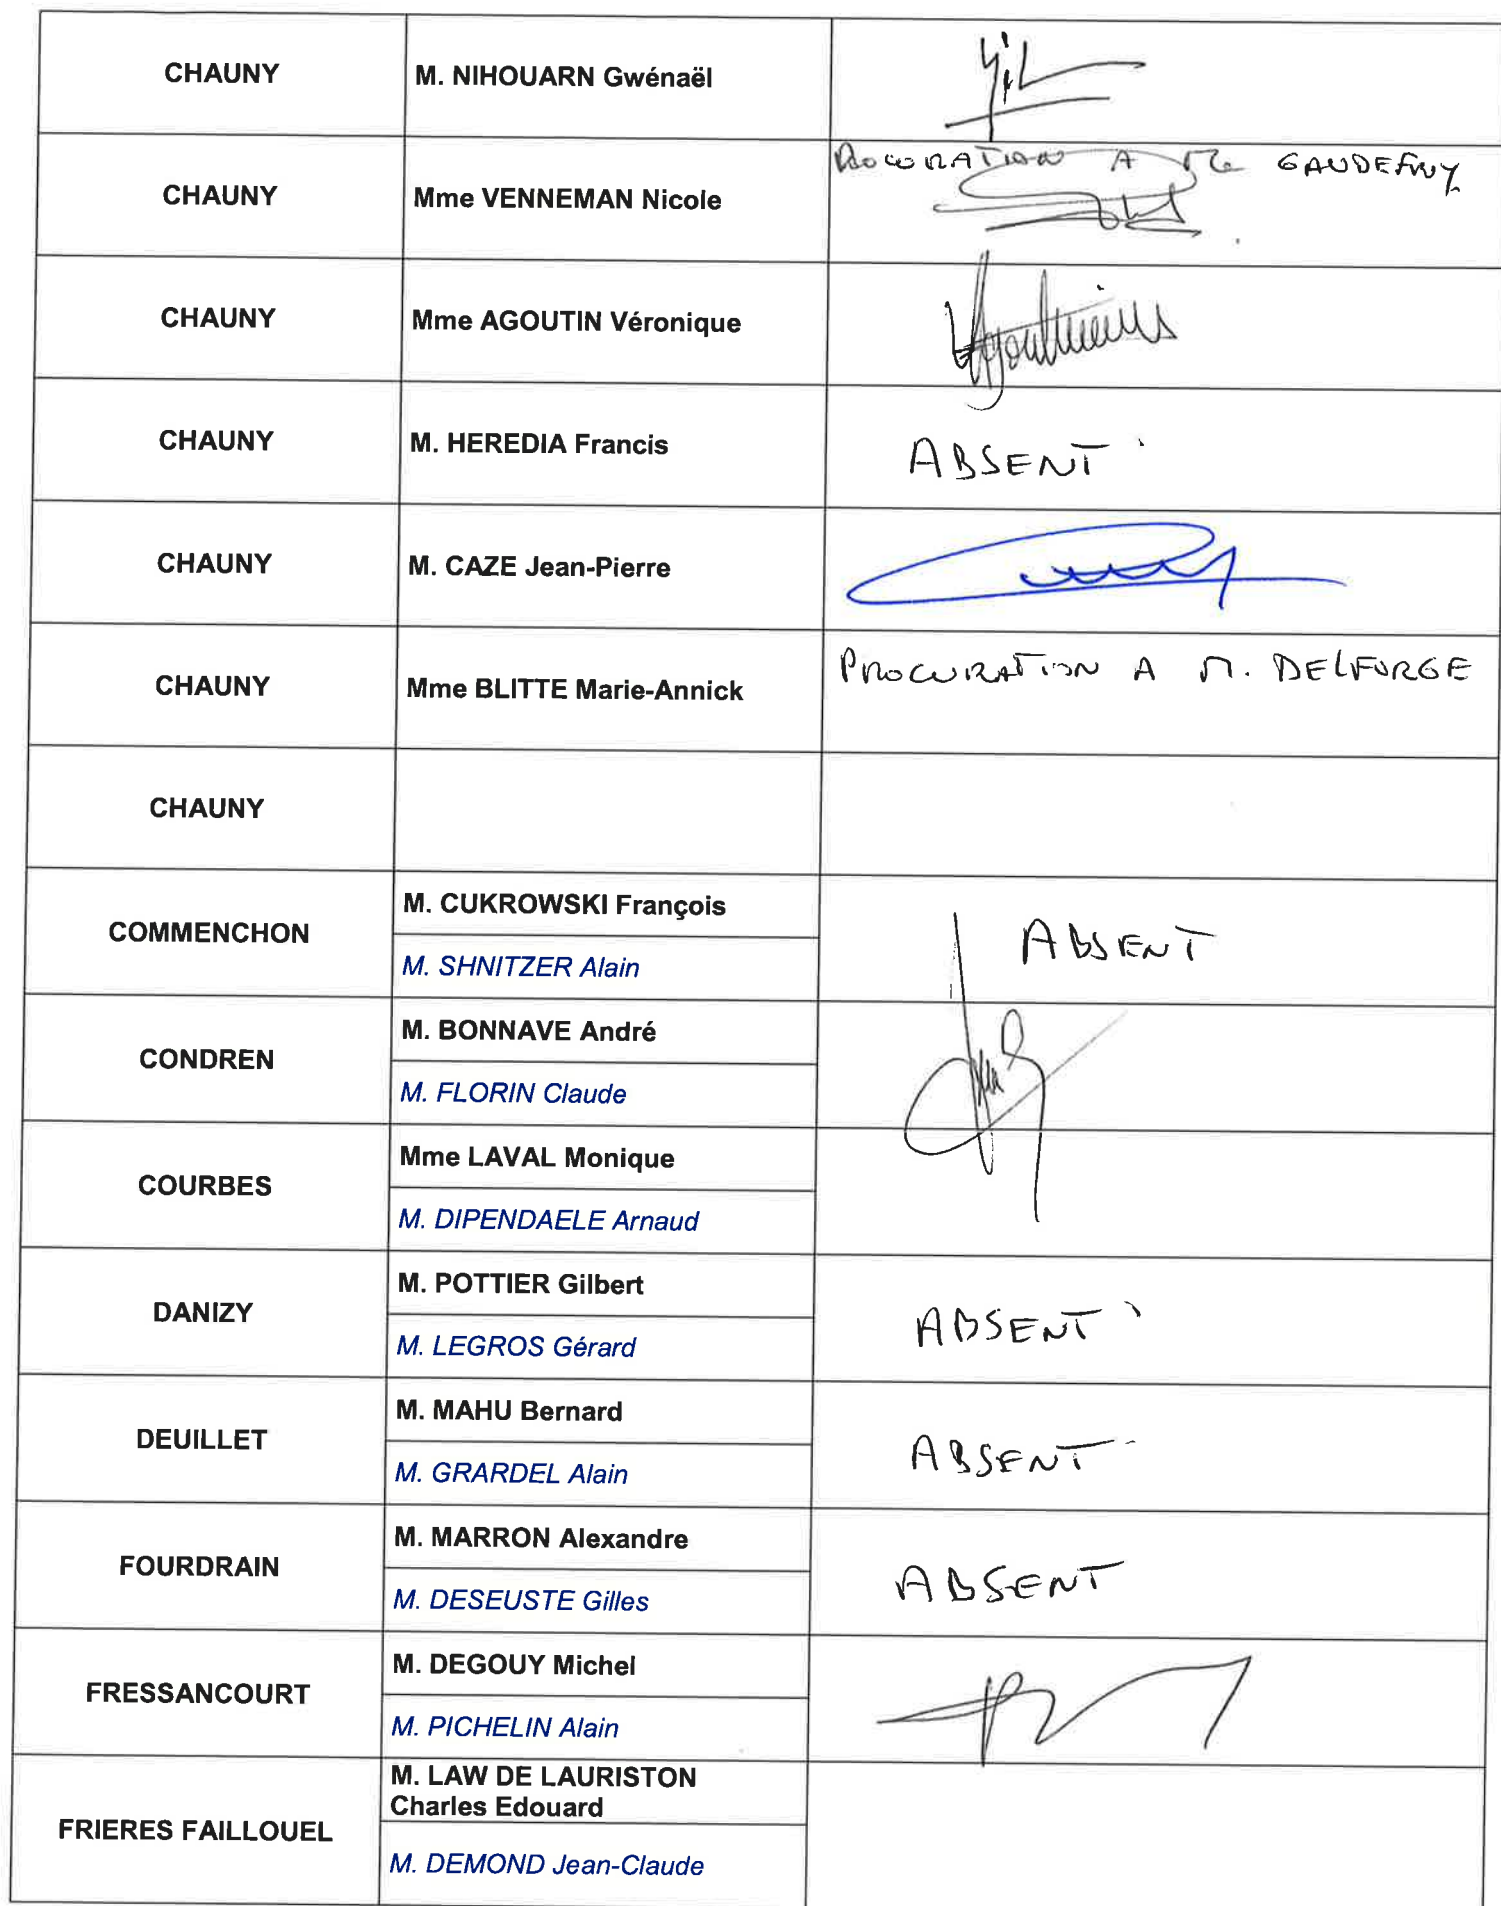 CHAUNY
M. NIHOUARN Gwénaël
CHAUNY
Mme VENNEMAN Nicole
PROCURATION A GAUDEFROY
CHAUNY
Mme AGOUTIN Véronique
CHAUNY
M. HEREDIA Francis
ABSENT
CHAUNY
M. CAZE Jean-Pierre
CHAUNY
Mme BLITTE Marie-Annick
PROCURATION A M. DELFORGE
CHAUNY
COMMENCHON
M. CUKROWSKI François
M. SHNITZER Alain
ABSENT
CONDREN
M. BONNAVE André
M. FLORIN Claude
COURBES
Mme LAVAL Monique
M. DIPENDAELE Arnaud
DANIZY
M. POTTIER Gilbert
M. LEGROS Gérard
ABSENT
DEUILLET
M. MAHU Bernard
M. GRARDEL Alain
ABSENT
FOURDRAIN
M. MARRON Alexandre
M. DESEUSTE Gilles
ABSENT
FRESSANCOURT
M. DEGOUY Michel
M. PICHELIN Alain
FRIERES FAILLOUEL
M. LAW DE LAURISTON
Charles Edouard
M. DEMOND Jean-Claude